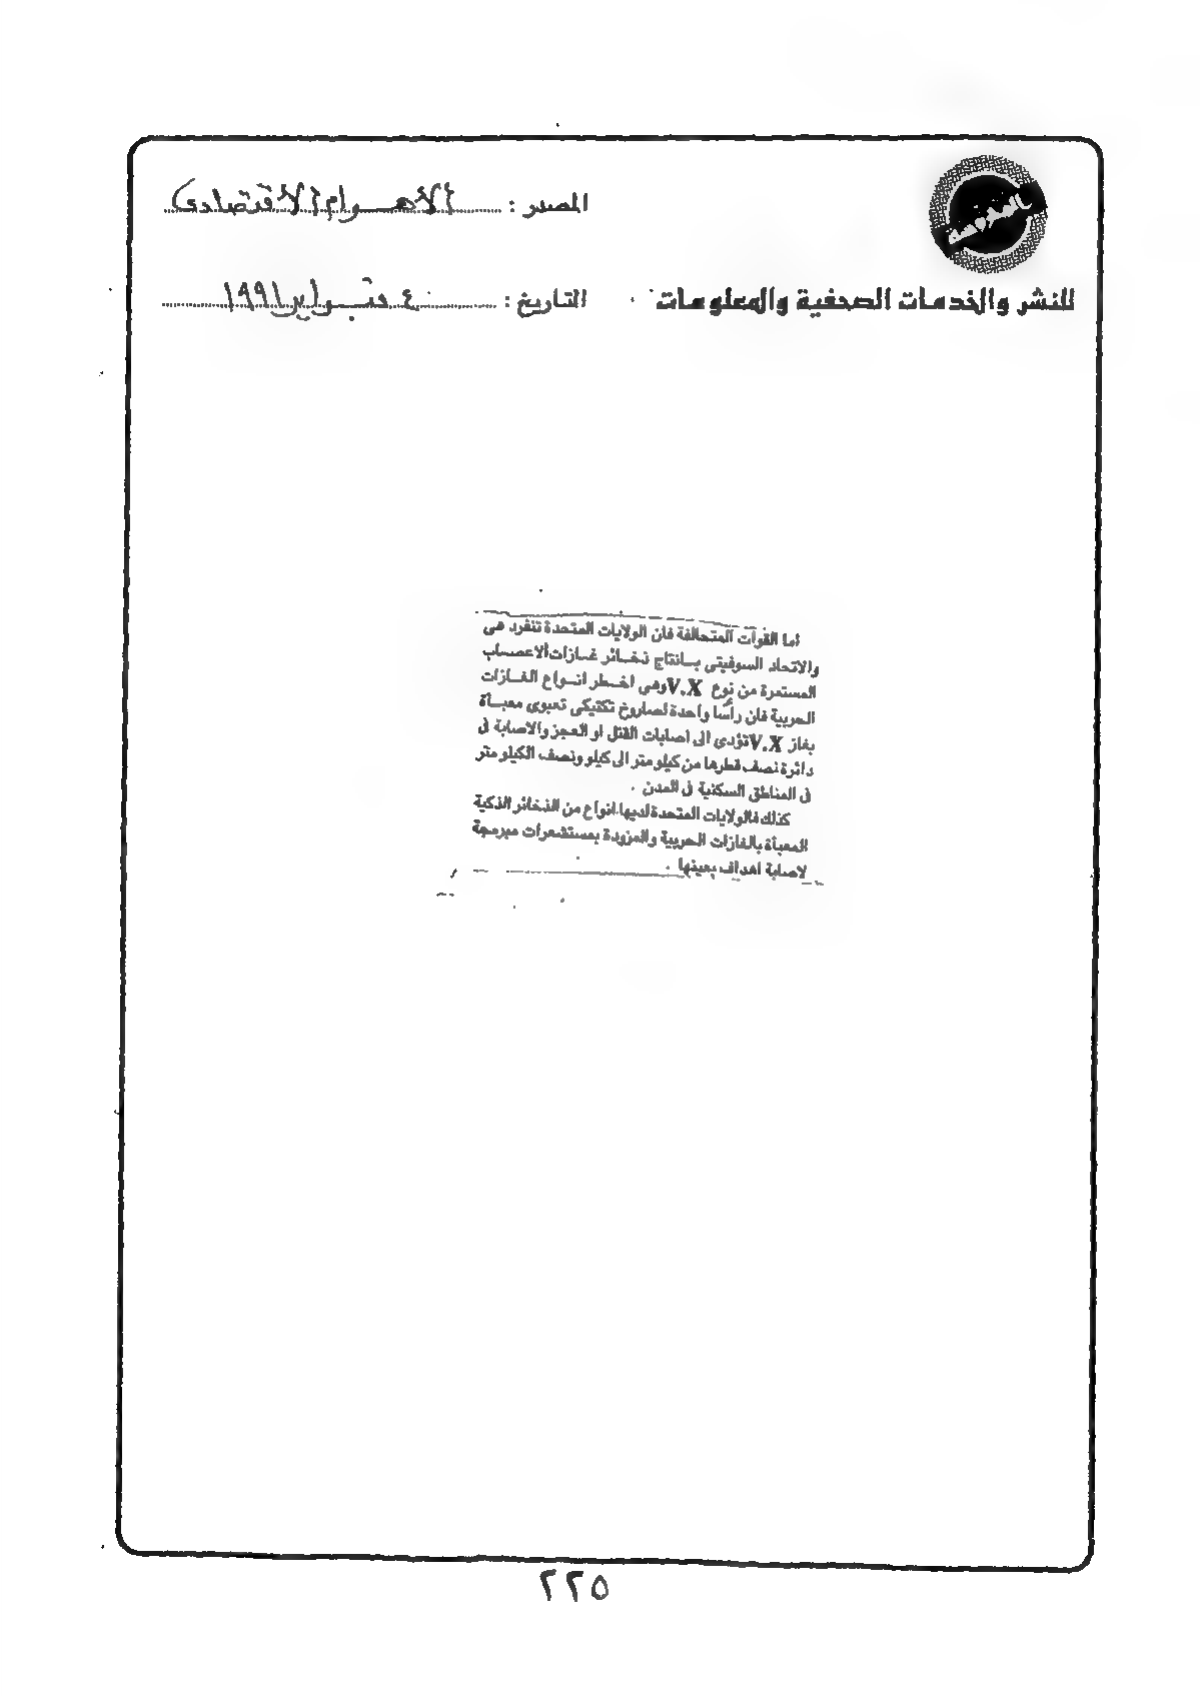 المحروسة
المصدر : الأهرام الاقتصادى
للنشر والخدمات الصحفية والمعلومات
التاريخ : ٤ فبراير ١٩٩١
اما القوات المتحالفة فان الولايات المتحدة تنفرد هى
والاتحاد السوفيتى بانتاج نخائر غازات الاعصاب
المستمرة من نوع V.X وهى اخطر انواع الغازات
الحربية فان رأسا واحدة لصاروخ تكتيكى تعبوى معبأة
بغاز V.X تؤدى الى اصابات القتل او العجز والاصابة فى
دائرة نصف قطرها من كيلو متر الى كيلو ونصف الكيلو متر
فى المناطق السكنية فى المدن .
كذلك فالولايات المتحدة لديها انواع من الذخائر الذكية
المعبأة بالغازات الحربية والمزودة بمستشعرات مبرمجة
لاصابة اهداف بعينها .
٢٢٥